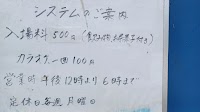 システムのご案内
入場料 500円 (飲み物、お菓子付き)
カラオケ 一回 100円
営業時 午後12時より6時まで
定休日毎週月曜日